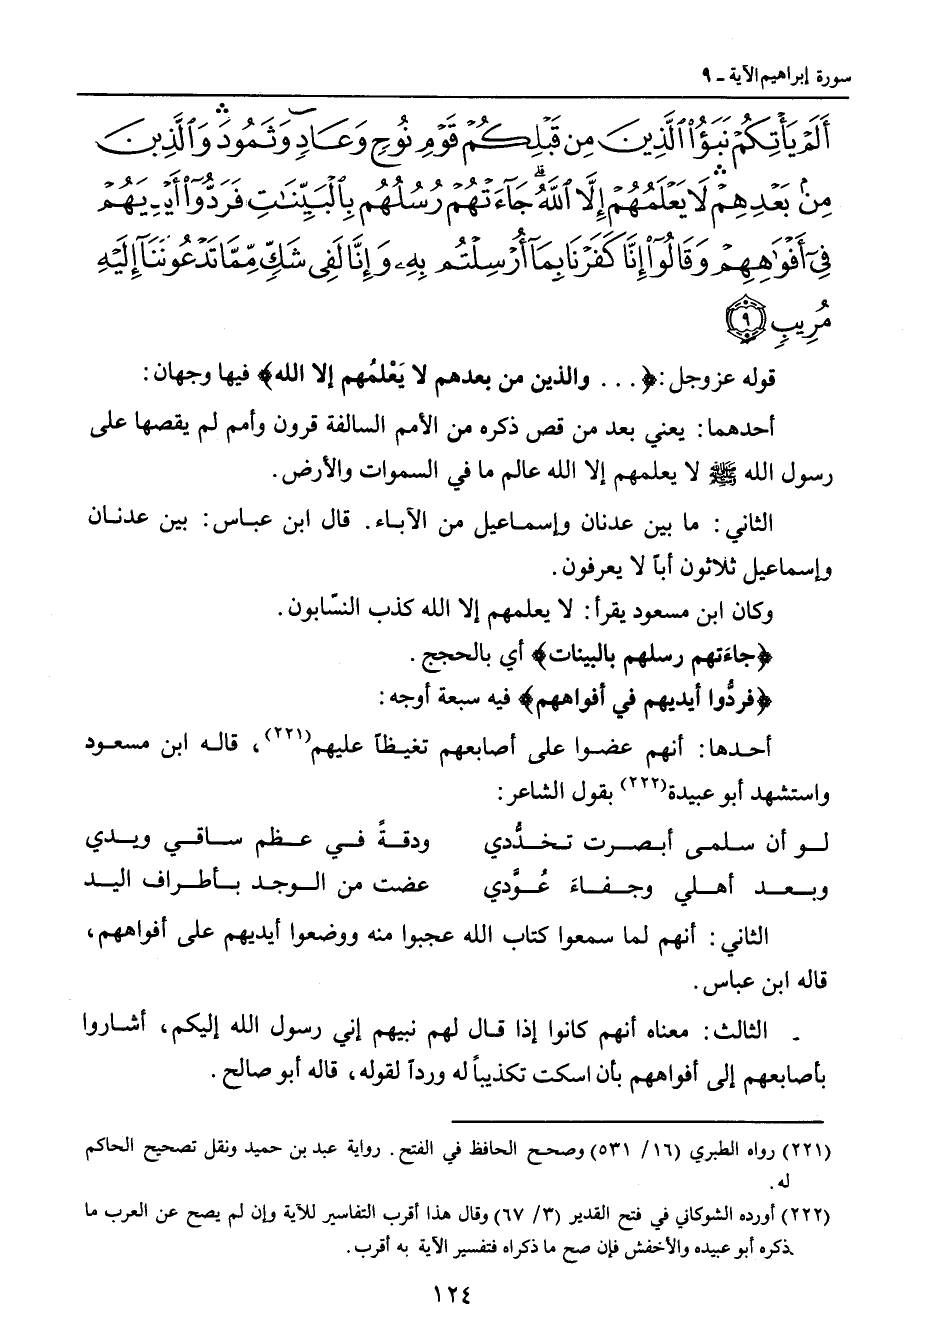 سورة إبراهيم الآية - ٩
أَلَمْ يَأْتِكُمْ نَبَؤُا۟ ٱلَّذِينَ مِن قَبْلِكُمْ قَوْمِ نُوحٍ وَعَادٍ وَثَمُودَ ۛ وَٱلَّذِينَ
مِنۢ بَعْدِهِمْ ۛ لَا يَعْلَمُهُمْ إِلَّا ٱللَّهُ ۚ جَآءَتْهُمْ رُسُلُهُم بِٱلْبَيِّنَـٰتِ فَرَدُّوٓا۟ أَيْدِيَهُمْ
فِىٓ أَفْوَٰهِهِمْ وَقَالُوٓا۟ إِنَّا كَفَرْنَا بِمَآ أُرْسِلْتُم بِهِۦ وَإِنَّا لَفِى شَكٍّ مِّمَّا تَدْعُونَنَآ إِلَيْهِ
مُرِيبٍ ٩
قوله عز وجل: ﴿... والذين من بعدهم لا يَعْلمُهم إلا الله﴾ فيها وجهان:
أحدهما: يعني بعد من قص ذكره من الأمم السالفة قرون وأمم لم يقصها على
رسول الله ﷺ لا يعلمهم إلا الله عالم ما في السموات والأرض.
الثاني: ما بين عدنان وإسماعيل من الآباء. قال ابن عباس: بين عدنان
وإسماعيل ثلاثون أباً لا يعرفون.
وكان ابن مسعود يقرأ: لا يعلمهم إلا الله كذب النسّابون.
﴿جاءَتهم رسلهم بالبينات﴾ أي بالحجج.
﴿فردُّوا أيديهم في أفواههم﴾ فيه سبعة أوجه:
أحدها: أنهم عضوا على أصابعهم تغيظاً عليهم(٢٢١)، قاله ابن مسعود
واستشهد أبو عبيدة(٢٢٢) بقول الشاعر:
لو أن سلمى أبصرت تخدُّدي ودقةً في عظم ساقي ويدي
وبعد أهلي وجفاءَ عُوَّدي عضت من الوجد بأطراف اليد
الثاني: أنهم لما سمعوا كتاب الله عجبوا منه ووضعوا أيديهم على أفواههم،
قاله ابن عباس.
الثالث: معناه أنهم كانوا إذا قال لهم نبيهم إني رسول الله إليكم، أشاروا
بأصابعهم إلى أفواههم بأن اسكت تكذيباً له ورداً لقوله، قاله أبو صالح.
(٢٢١) رواه الطبري (١٦/ ٥٣١) وصحح الحافظ في الفتح. رواية عبد بن حميد ونقل تصحيح الحاكم
له.
(٢٢٢) أورده الشوكاني في فتح القدير (٣/ ٦٧) وقال هذا أقرب التفاسير للآية وإن لم يصح عن العرب ما
ذكره أبو عبيده والأخفش فإن صح ما ذكراه فتفسير الآية به أقرب.
١٢٤